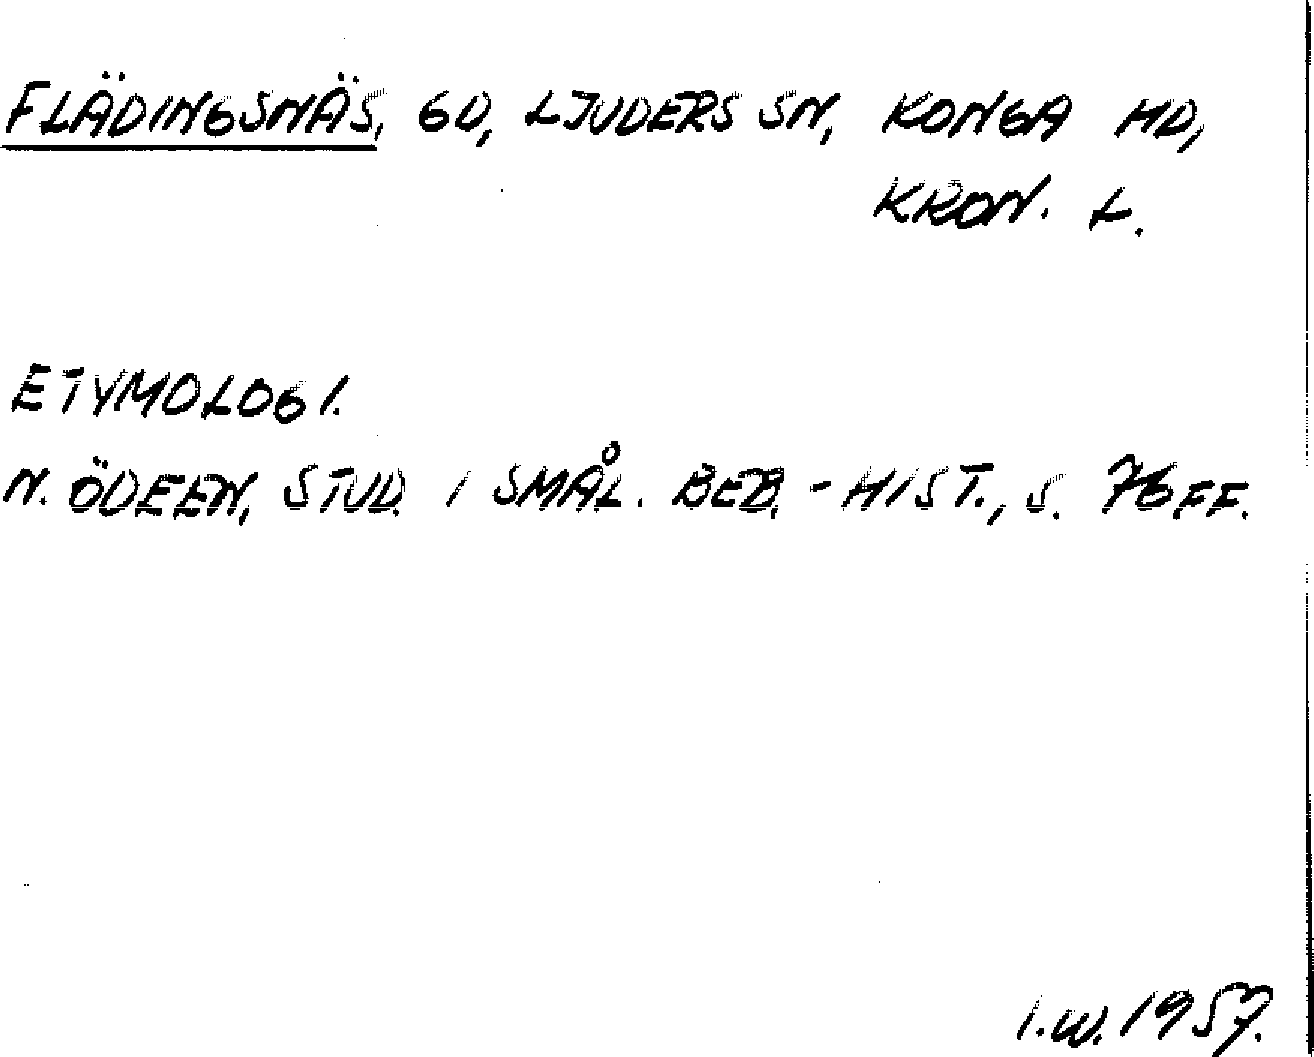 FLÄDINGSNÄS, GD, LJUDERS SN, KONGA HD,
KRON. L.
ETYMOLOGI.
N. ÖDEEN, STUD. I SMÅL. BEB.-HIST., S. 76FF.
I.W. 1957.